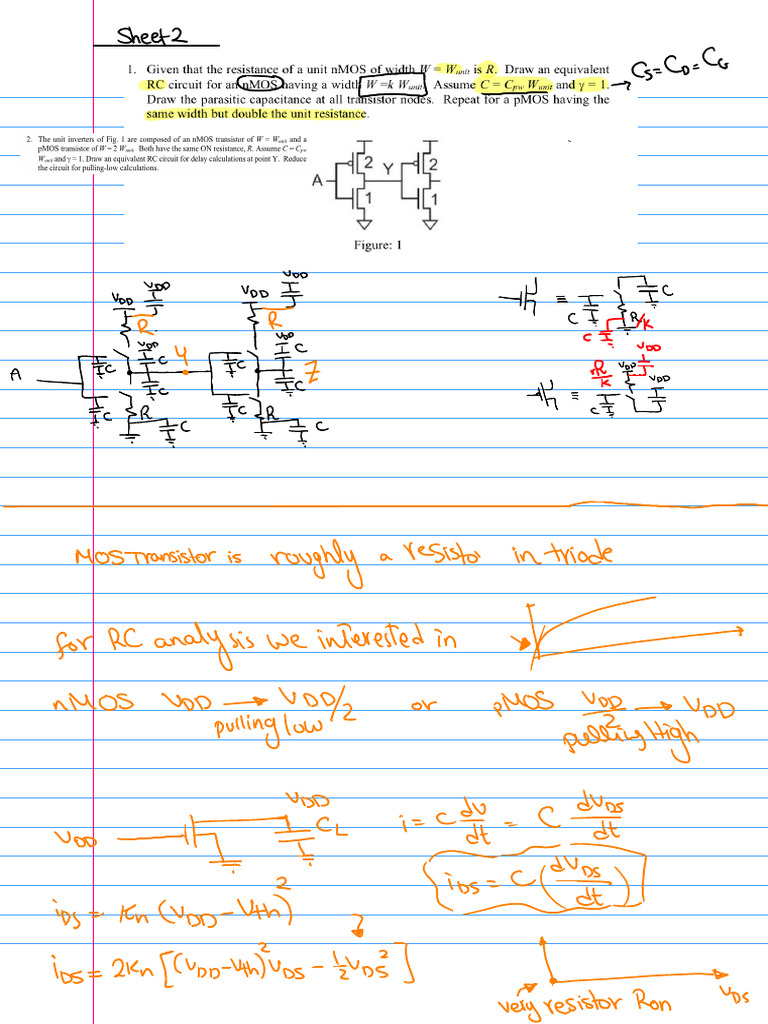 Sheet 2
1. Given that the resistance of a unit nMOS of width W = Wunit is R. Draw an equivalent
RC circuit for an nMOS having a width W =k Wunit. Assume C = Cpw Wunit and γ = 1. → CS = CD = CG
Draw the parasitic capacitance at all transistor nodes. Repeat for a pMOS having the
same width but double the unit resistance.
2. The unit inverters of Fig. 1 are composed of an nMOS transistor of W = Wunit and a
pMOS transistor of W = 2 Wunit. Both have the same ON resistance, R. Assume C = Cpw
Wunit and γ = 1. Draw an equivalent RC circuit for delay calculations at point Y. Reduce
the circuit for pulling-low calculations.
A 2 Y 2
1 1
Figure: 1
VDD VDD VDD VDD
R R
VDD C VDD C
C Y C Z
A
C C C C
R C R C
≡ C C R/k C
VDD
2R/k VDD VDD
≡ C
MOS Transistor is roughly a resistor in triode
for RC analysis we interested in
nMOS VDD → VDD/2 or pMOS VDD/2 → VDD
pulling low pulling High
VDD
VDD CL i = C dv/dt = C dVDS/dt
iDS = C (dVDS/dt)
iDS = Kn (VDD - Vth)²
iDS = 2Kn [(VDD - Vth)² VDS - ½ VDS²]
VDS
very resistor Ron